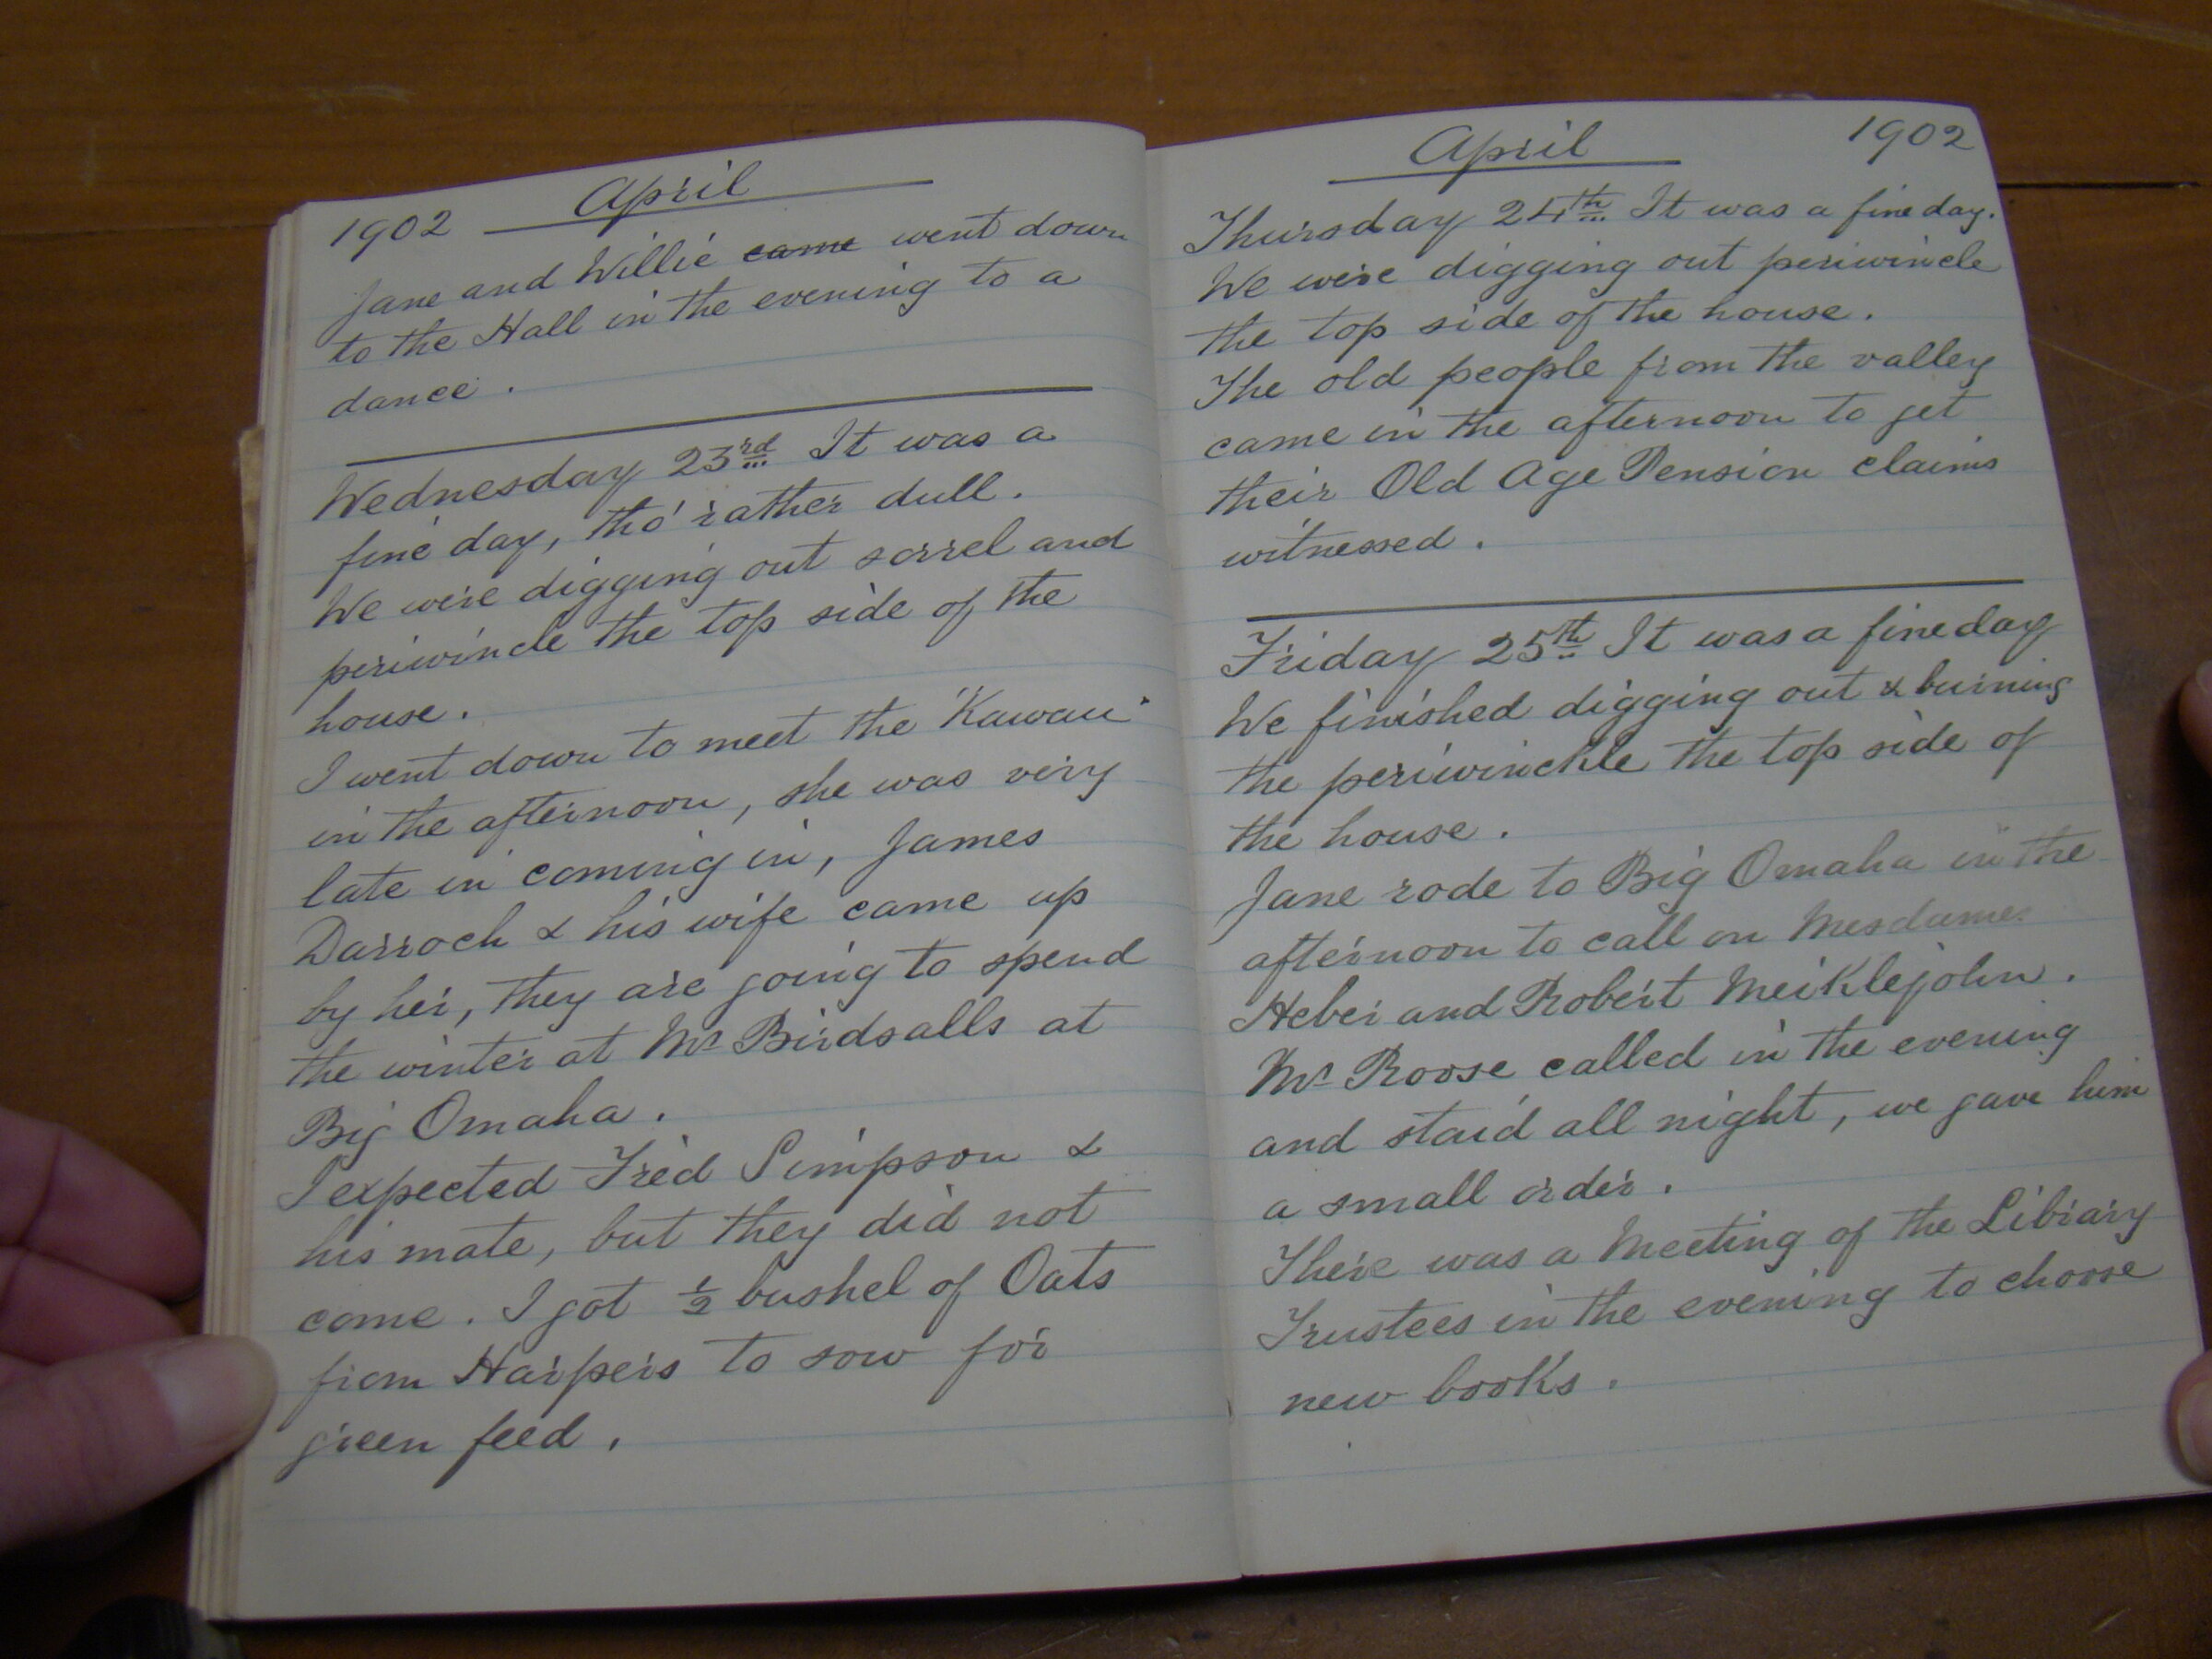 1902 April
Jane and Willie came went down
to the Hall in the evening to a
dance.
Wednesday 23rd It was a
fine day, tho' rather dull.
We were digging out sorrel and
periwincle the top side of the
house.
I went down to meet the "Kawau"
in the afternoon, she was very
late in coming in, James
Darroch & his wife came up
by her, they are going to spend
the winter at Mr Birdsalls at
Big Omaha.
I expected Fred Simpson &
his mate, but they did not
come. I got ½ bushel of Oats
from Harpers to sow for
green feed.
April 1902
Thursday 24th It was a fine day.
We were digging out periwincle
the top side of the house.
The old people from the valley
came in the afternoon to get
their Old Age Pension claims
witnessed.
Friday 25th It was a fine day
We finished digging out & burning
the periwinckle the top side of
the house.
Jane rode to Big Omaha in the
afternoon to call on Mesdames
Heber and Robert Meiklejohn.
Mr Roose called in the evening
and staid all night, we gave him
a small order.
There was a Meeting of the Library
Trustees in the evening to choose
new books.